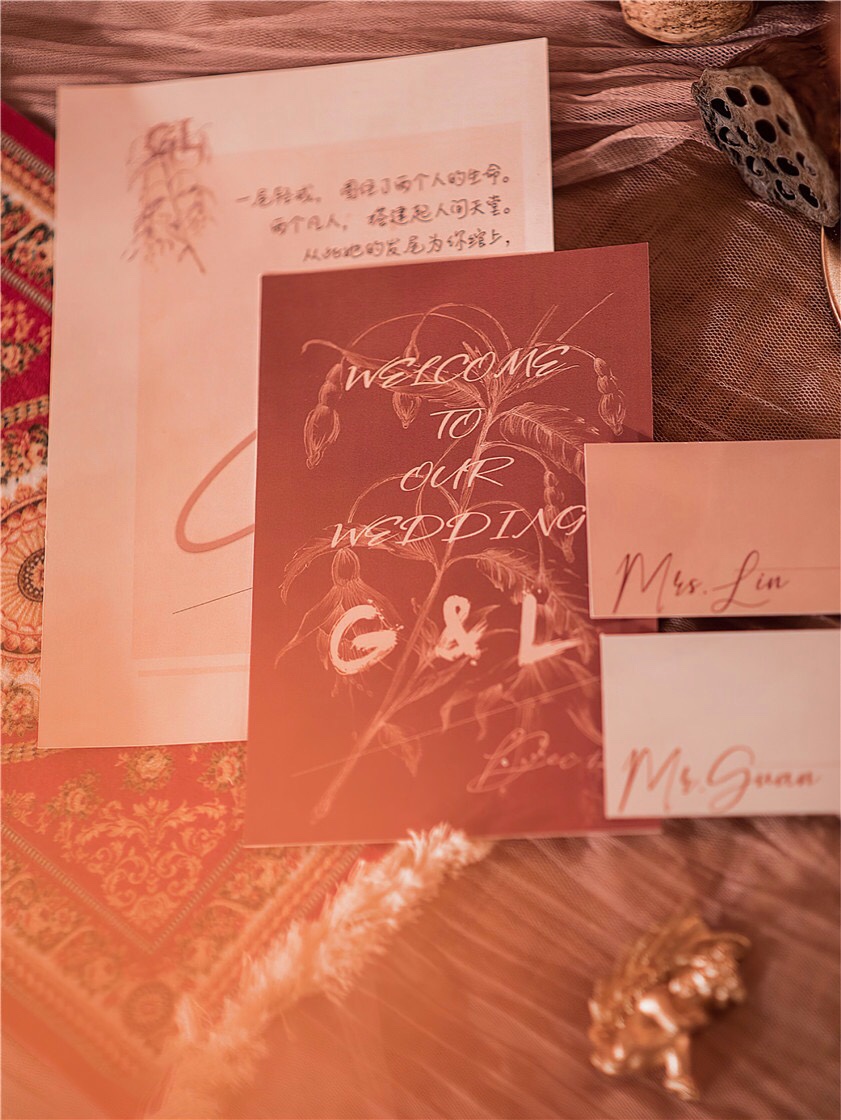 GL
一尾轻戒，圈住了两个人的生命。
两个凡人，搭建起人间天堂。
从此她的发尾为你绾上，
WELCOME
TO
OUR
WEDDING
G & L
Mrs. Lin
Mr. Guan